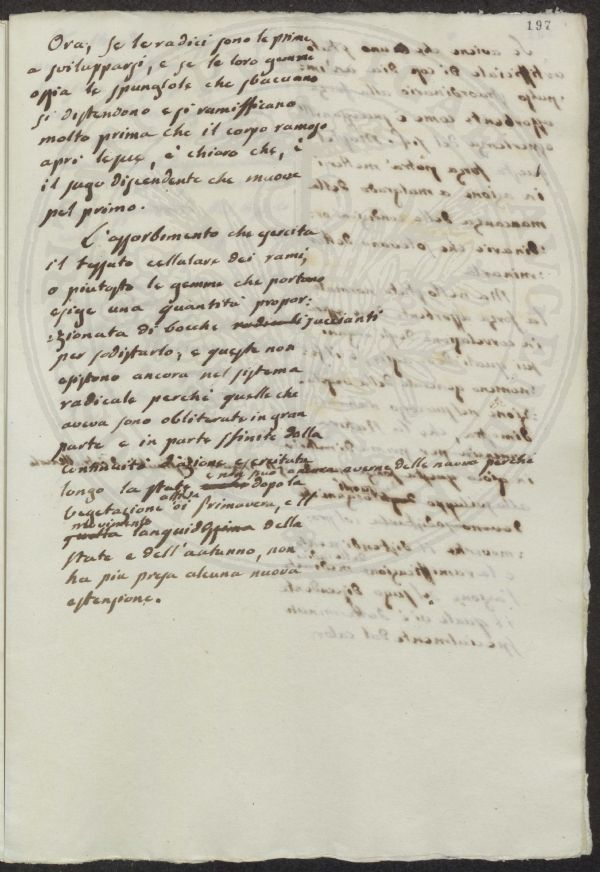 197
Ora, se le radici sono le prime
a svilupparsi, e se le loro gemme
ossia le spungiole che sbucciano
si distendono e si ramifficano
molto prima che il corpo ramoso
apri le sue, è chiaro che, è
il sugo discendente che muove
pel primo.
L'assorbimento che esercita
il tessuto cellulare dei rami,
o piutosto le gemme che portano
esige una quantità propor:
:zionata di bocche succianti
per sodisfarlo; e queste non
esistono ancora nel sistema
radicale perchè quelle che
aveva sono obliterate in gran
parte e in parte sfinite dalla
continuità d'azione esercitata
e non può averne delle nuove perchè
lungo la state dopo la
attiva
vegetazione di primavera, e il
movimento
quella languidissima della
state e dell'autunno, non
ha più presa alcuna nuova
estensione.